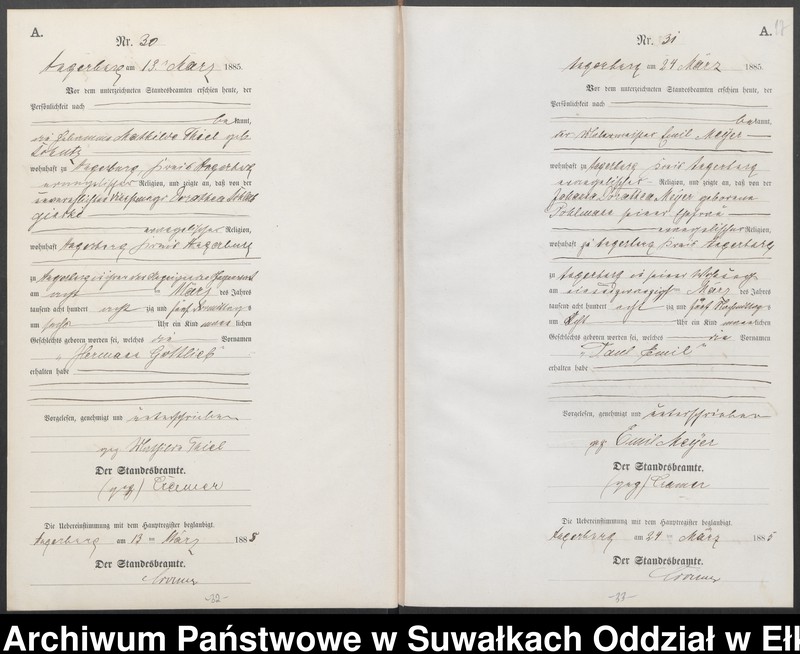 A.
Nr. 30
Angerburg am 13. März 1885.
Vor dem unterzeichneten Standesbeamten erschien heute, der
Persönlichkeit nach
bekannt,
die Hebamme Mathilde Thiel geb.
wohnhaft zu Angerburg Kreis Angerburg
evangelischer Religion, und zeigte an, daß von der
unverehelichten Dorothea
evangelischer Religion,
wohnhaft Angerburg Kreis Angerburg
zu Angerburg in
am acht März des Jahres
tausend acht hundert acht zig und fünf Vormittags
um sechs Uhr ein Kind männlichen
Geschlechts geboren worden sei, welches die Vornamen
„Herman Gottlieb“
erhalten habe
Vorgelesen, genehmigt und unterschrieben
gez Mathilde Thiel
Der Standesbeamte.
(gez) Cramer
Die Uebereinstimmung mit dem Hauptregister beglaubigt.
Angerburg am 13 ten März 1885
Der Standesbeamte.
Cramer
-32-
A. 17
Nr. 31
Angerburg am 24 März 1885.
Vor dem unterzeichneten Standesbeamten erschien heute, der
Persönlichkeit nach
bekannt,
der Emil Meyer
wohnhaft zu Angerburg Kreis Angerburg
evangelischer Religion, und zeigte an, daß von der
Dorothea Meyer geborene
Pohlmann seiner Ehefrau
evangelischer Religion,
wohnhaft zu Angerburg Kreis Angerburg
zu Angerburg in seiner Wohnung
am einundzwanzigsten März des Jahres
tausend acht hundert acht zig und fünf Nachmittags
um acht Uhr ein Kind männlichen
Geschlechts geboren worden sei, welches die Vornamen
„Paul Emil“
erhalten habe
Vorgelesen, genehmigt und unterschrieben
gez Emil Meyer
Der Standesbeamte.
(gez) Cramer
Die Uebereinstimmung mit dem Hauptregister beglaubigt.
Angerburg am 24 ten März 1885
Der Standesbeamte.
Cramer
-33-
Archiwum Państwowe w Suwałkach Oddział w Ełk